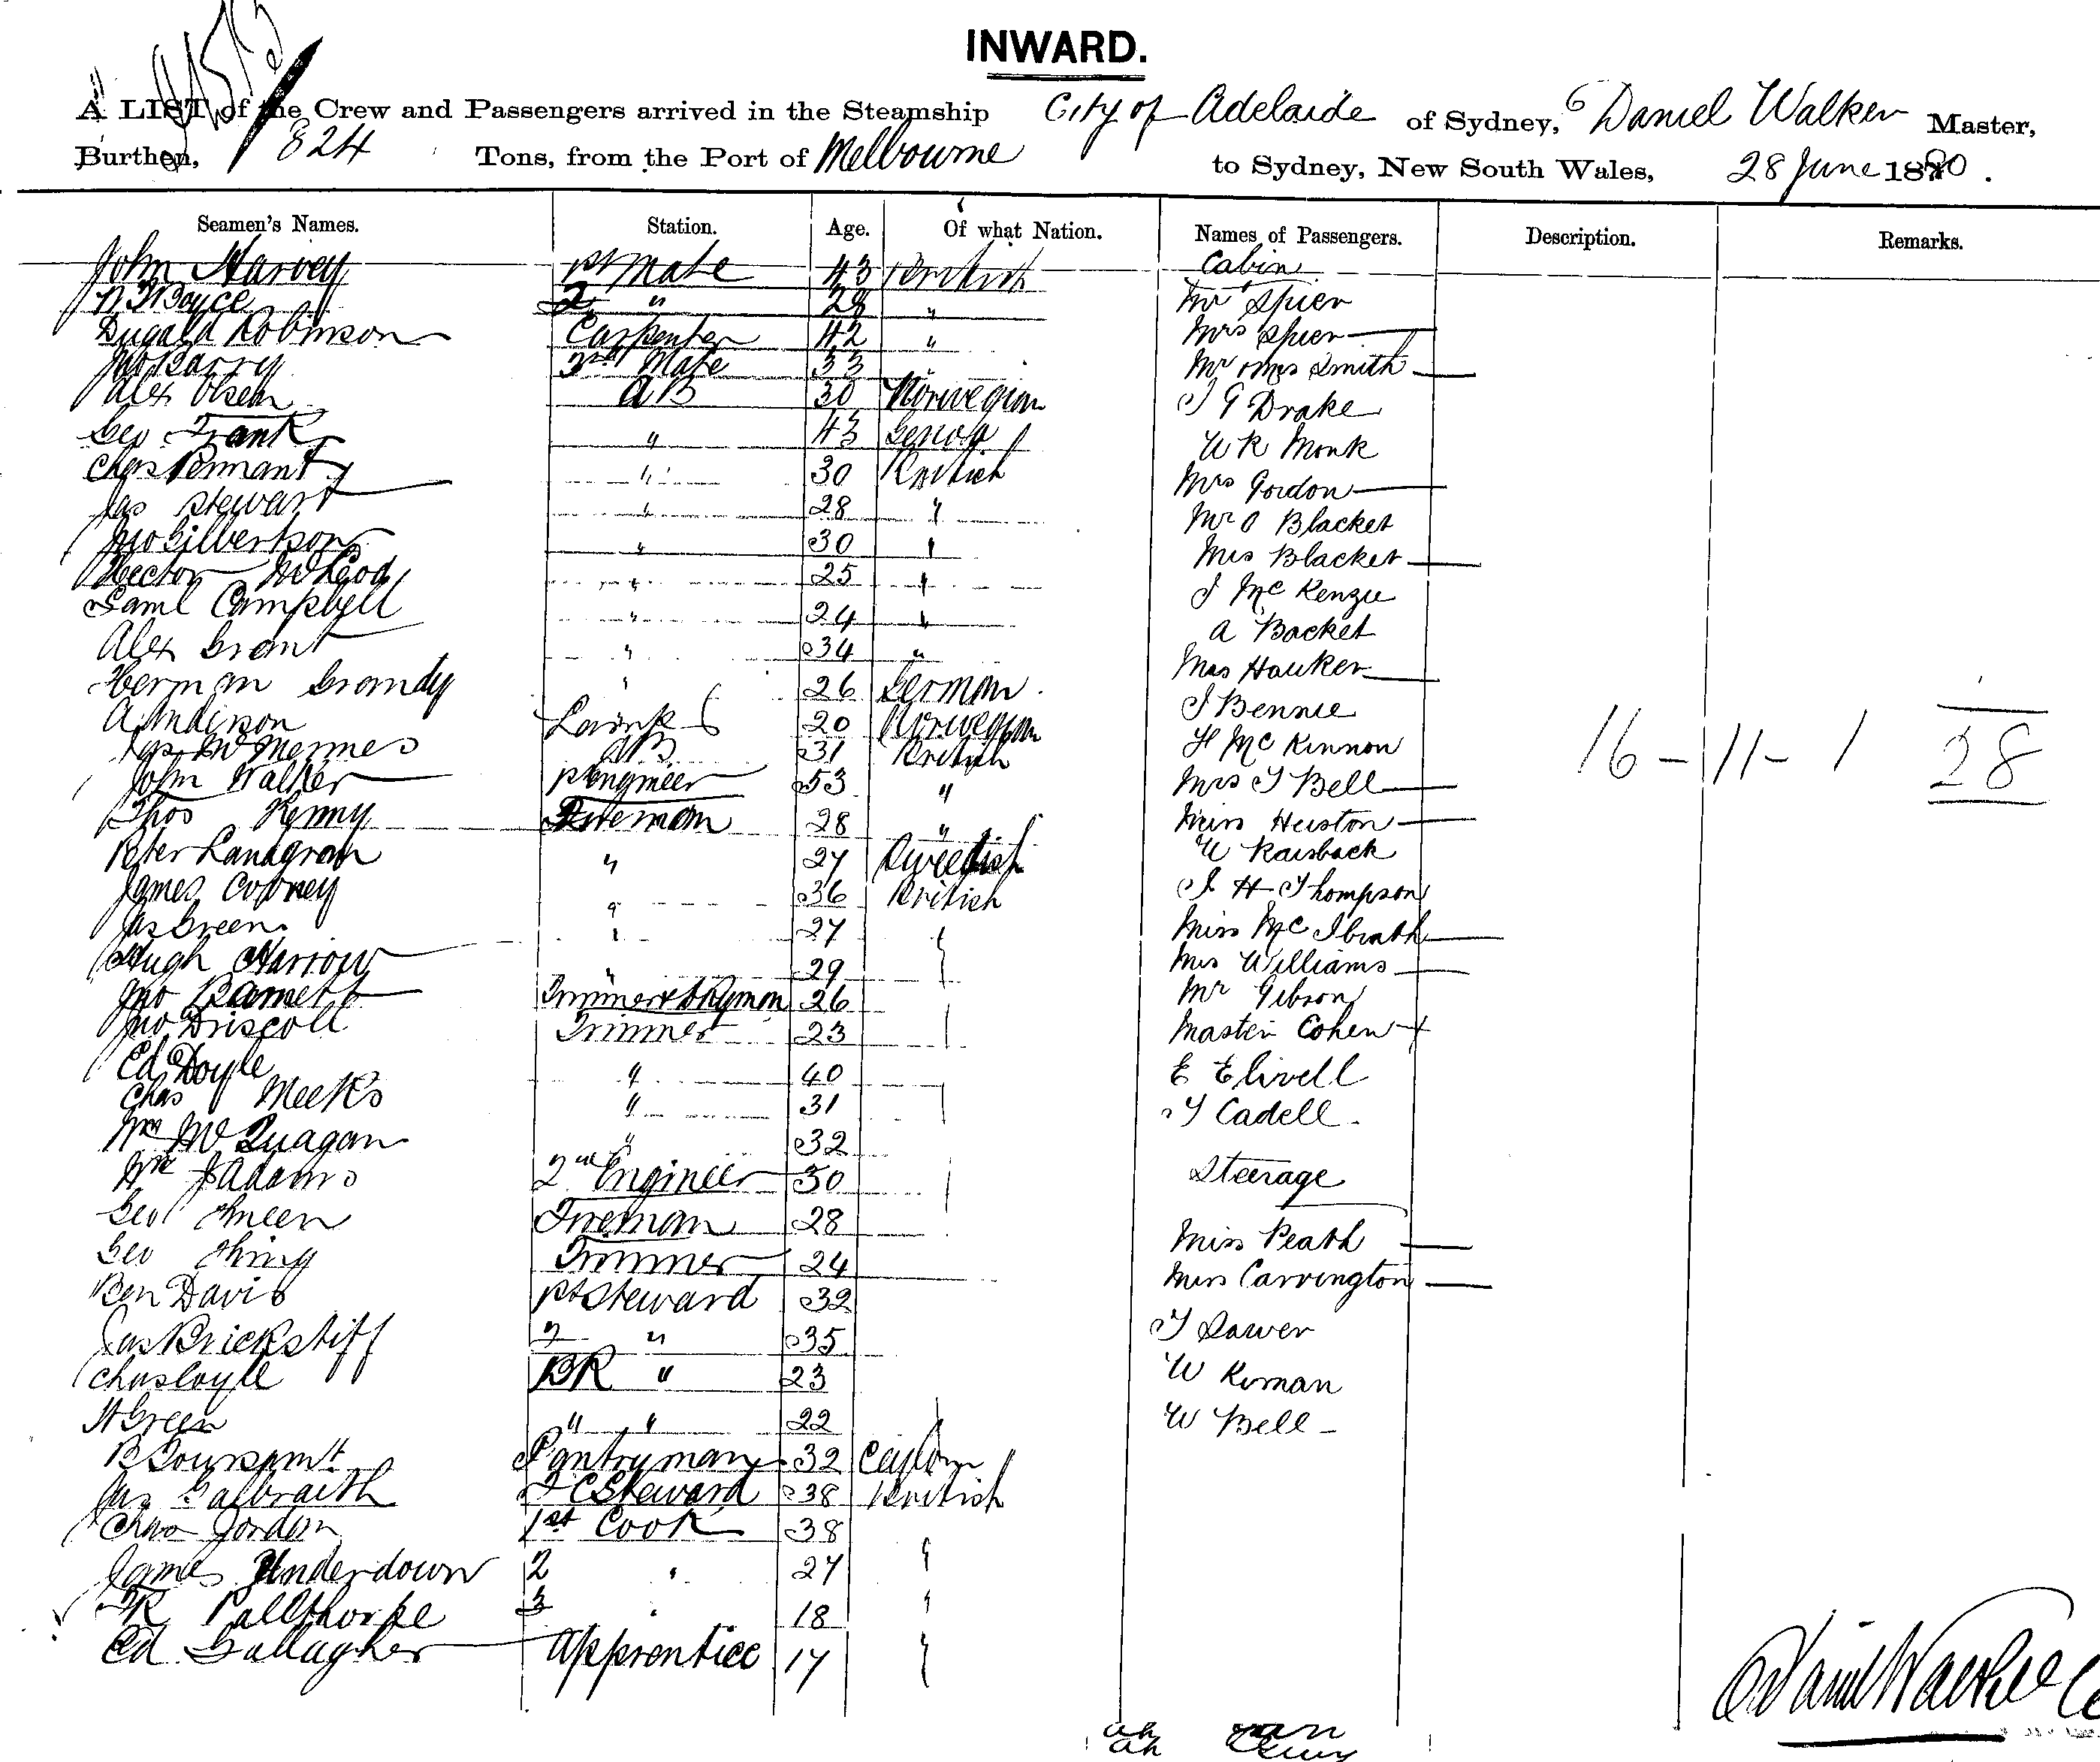 INWARD.
A LIST of the Crew and Passengers arrived in the Steamship City of Adelaide of Sydney, Daniel Walker Master,
Burthen, 824 Tons, from the Port of Melbourne to Sydney, New South Wales, 28 June 1880.
Seamen's Names. Station. Age. Of what Nation. Names of Passengers. Description. Remarks.
John Harvey 1st Mate 43 British Cabin
Boyce 2 " 28 " Mr Spier
Dugald Robinson Carpenter 42 " Mrs Spier
Jno Barry 3rd Mate 33 Mr & Mrs Smith
Alex Olsen AB 30 Norwegian J G Drake
Geo Frank " 43 Genoa W R Monk
Chas Pennant " 30 British Mrs Gordon
Jas Stewart " 28 " Mr O Blacket
Jno Gilbertson " 30 " Mrs Blacket
Hector McLeod " 25 " J McKenzie
Saml Campbell " 24 " A Backet
Alex Grant " 34 " Mrs Hauker
Herman Grandy " 26 German J Bennie
20 Norwegian H McKinnon
AB 31 British 16-11-1 28
John Walker 1st Engineer 53 " Mrs J Bell
Thos Kenny Fireman 28 " Miss Heuston
Peter Lanagrah " 27 Swedish W Raisback
James Cooney " 36 British J H Thompson
Jas Green " 27 Miss
Hugh Harrow " 29 Mrs Williams
Jno Barnett 26 Mr Gibson
Jno Driscoll Trimmer 23 Master Cohen
Ed Doyle " 40 E Elivell
Chas Meeks " 31 J Cadell
Wm McQuagan " 32
Wm J Adams 2nd Engineer 30 Steerage
Geo Fireman 28
Geo Trimmer 24 Miss Peath
Ben Davis 1st Steward 32 Miss Carrington
Jas Brickstiff 2 " 35
Chas Coyle BR " 23 W Kernan
H Green " " 22 W Bell
Pantryman 32 Ceylon
Jas Galbraith Steward 38 British
Chas Jordan 1st Cook 38
James Underdown 2 " 27 "
Pallthorpe 3 " 18 "
Ed Gallagher Apprentice 17 "
Daniel Walker